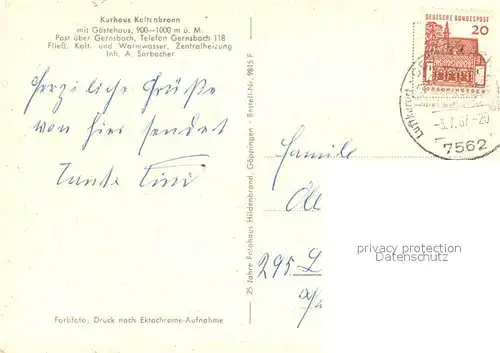 Kurhaus Kaltenbronn
mit Gästehaus, 900—1000 m ü. M.
Post über Gernsbach, Telefon Gernsbach 118
Fließ. Kalt- und Warmwasser, Zentralheizung
Inh. A. Sarbacher
Herzliche Grüße
von hier sendet
Tante Tini
Farbfoto: Druck nach Ektachrome-Aufnahme
25 Jahre Fotohaus Hildenbrand, Göppingen - Bestell-Nr. 9815 F
DEUTSCHE BUNDESPOST
20
LORSCH/HESSEN
Luftkurort
-3.7.67-20
7562
Familie
295 L
privacy protection
Datenschutz